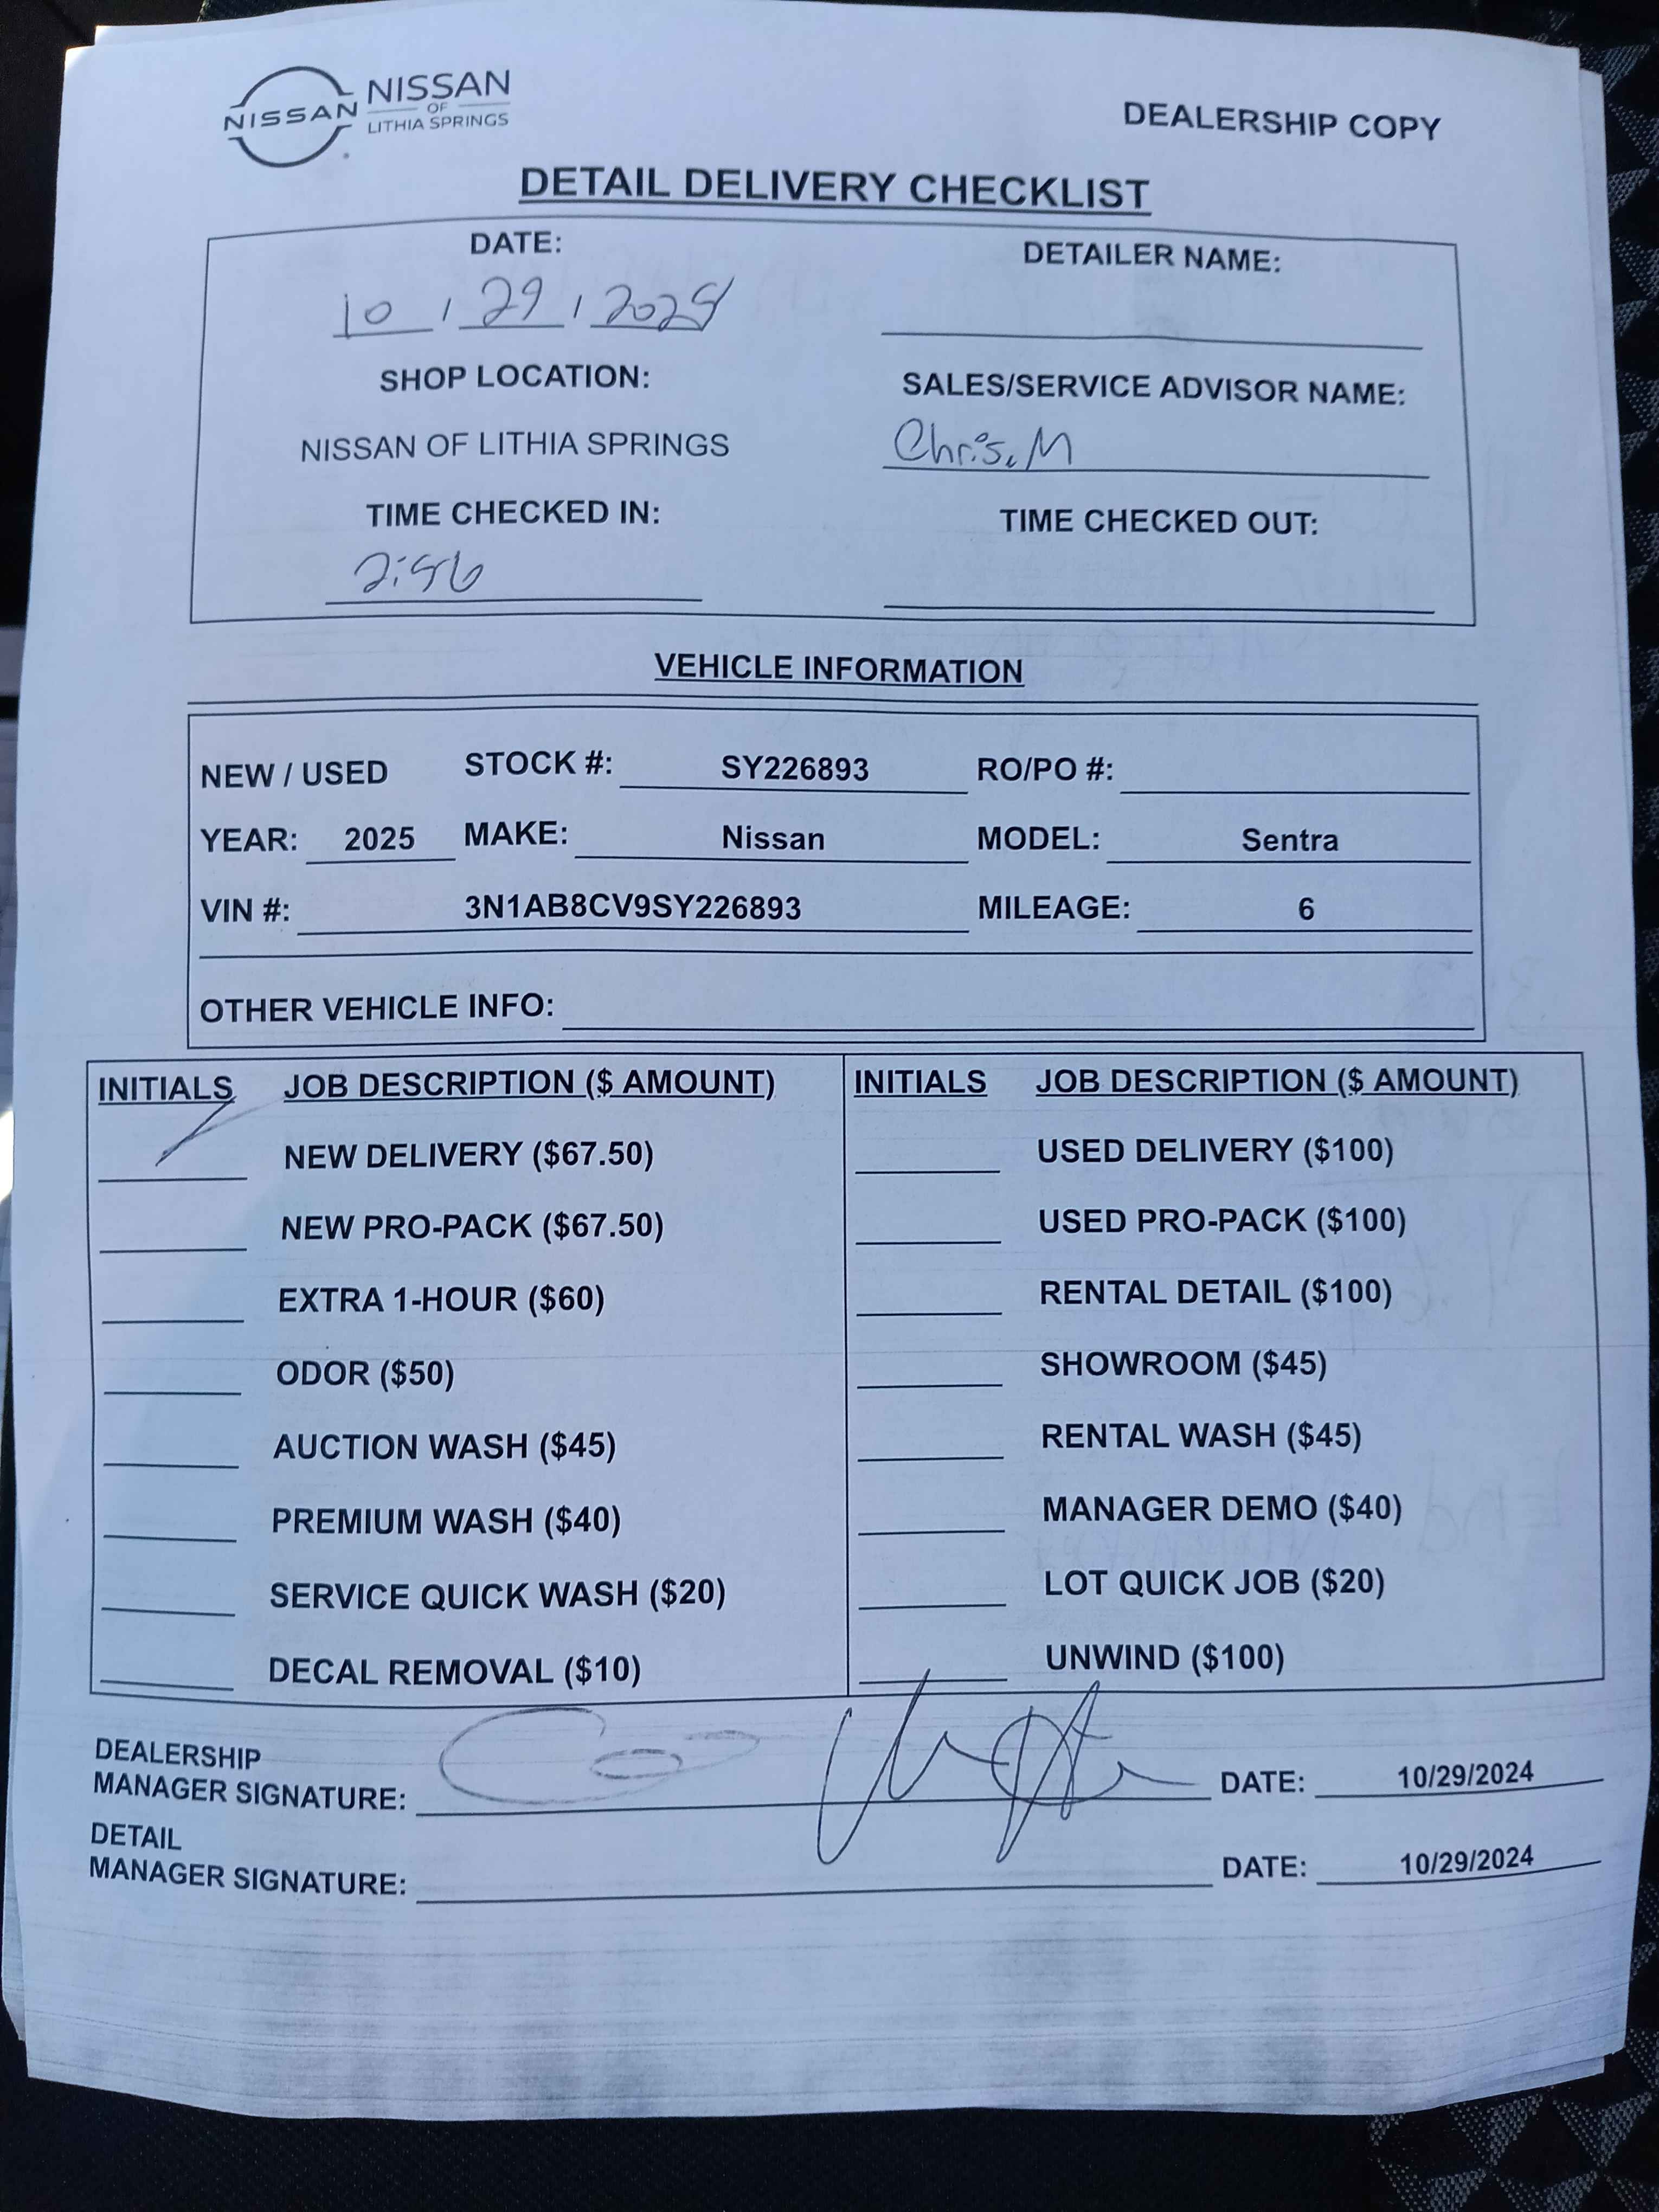 NISSAN
NISSAN
OF
LITHIA SPRINGS
DEALERSHIP COPY
DETAIL DELIVERY CHECKLIST
DATE:
DETAILER NAME:
10 / 29 /
SHOP LOCATION:
SALES/SERVICE ADVISOR NAME:
NISSAN OF LITHIA SPRINGS
Chris. M
TIME CHECKED IN:
TIME CHECKED OUT:
2:56
VEHICLE INFORMATION
NEW / USED STOCK #: SY226893 RO/PO #:
YEAR: 2025 MAKE: Nissan MODEL: Sentra
VIN #: 3N1AB8CV9SY226893 MILEAGE: 6
OTHER VEHICLE INFO:
INITIALS JOB DESCRIPTION ($ AMOUNT) INITIALS JOB DESCRIPTION ($ AMOUNT)
NEW DELIVERY ($67.50) USED DELIVERY ($100)
NEW PRO-PACK ($67.50) USED PRO-PACK ($100)
EXTRA 1-HOUR ($60) RENTAL DETAIL ($100)
ODOR ($50) SHOWROOM ($45)
AUCTION WASH ($45) RENTAL WASH ($45)
PREMIUM WASH ($40) MANAGER DEMO ($40)
SERVICE QUICK WASH ($20) LOT QUICK JOB ($20)
DECAL REMOVAL ($10) UNWIND ($100)
DEALERSHIP
MANAGER SIGNATURE: DATE: 10/29/2024
DETAIL
MANAGER SIGNATURE: DATE: 10/29/2024